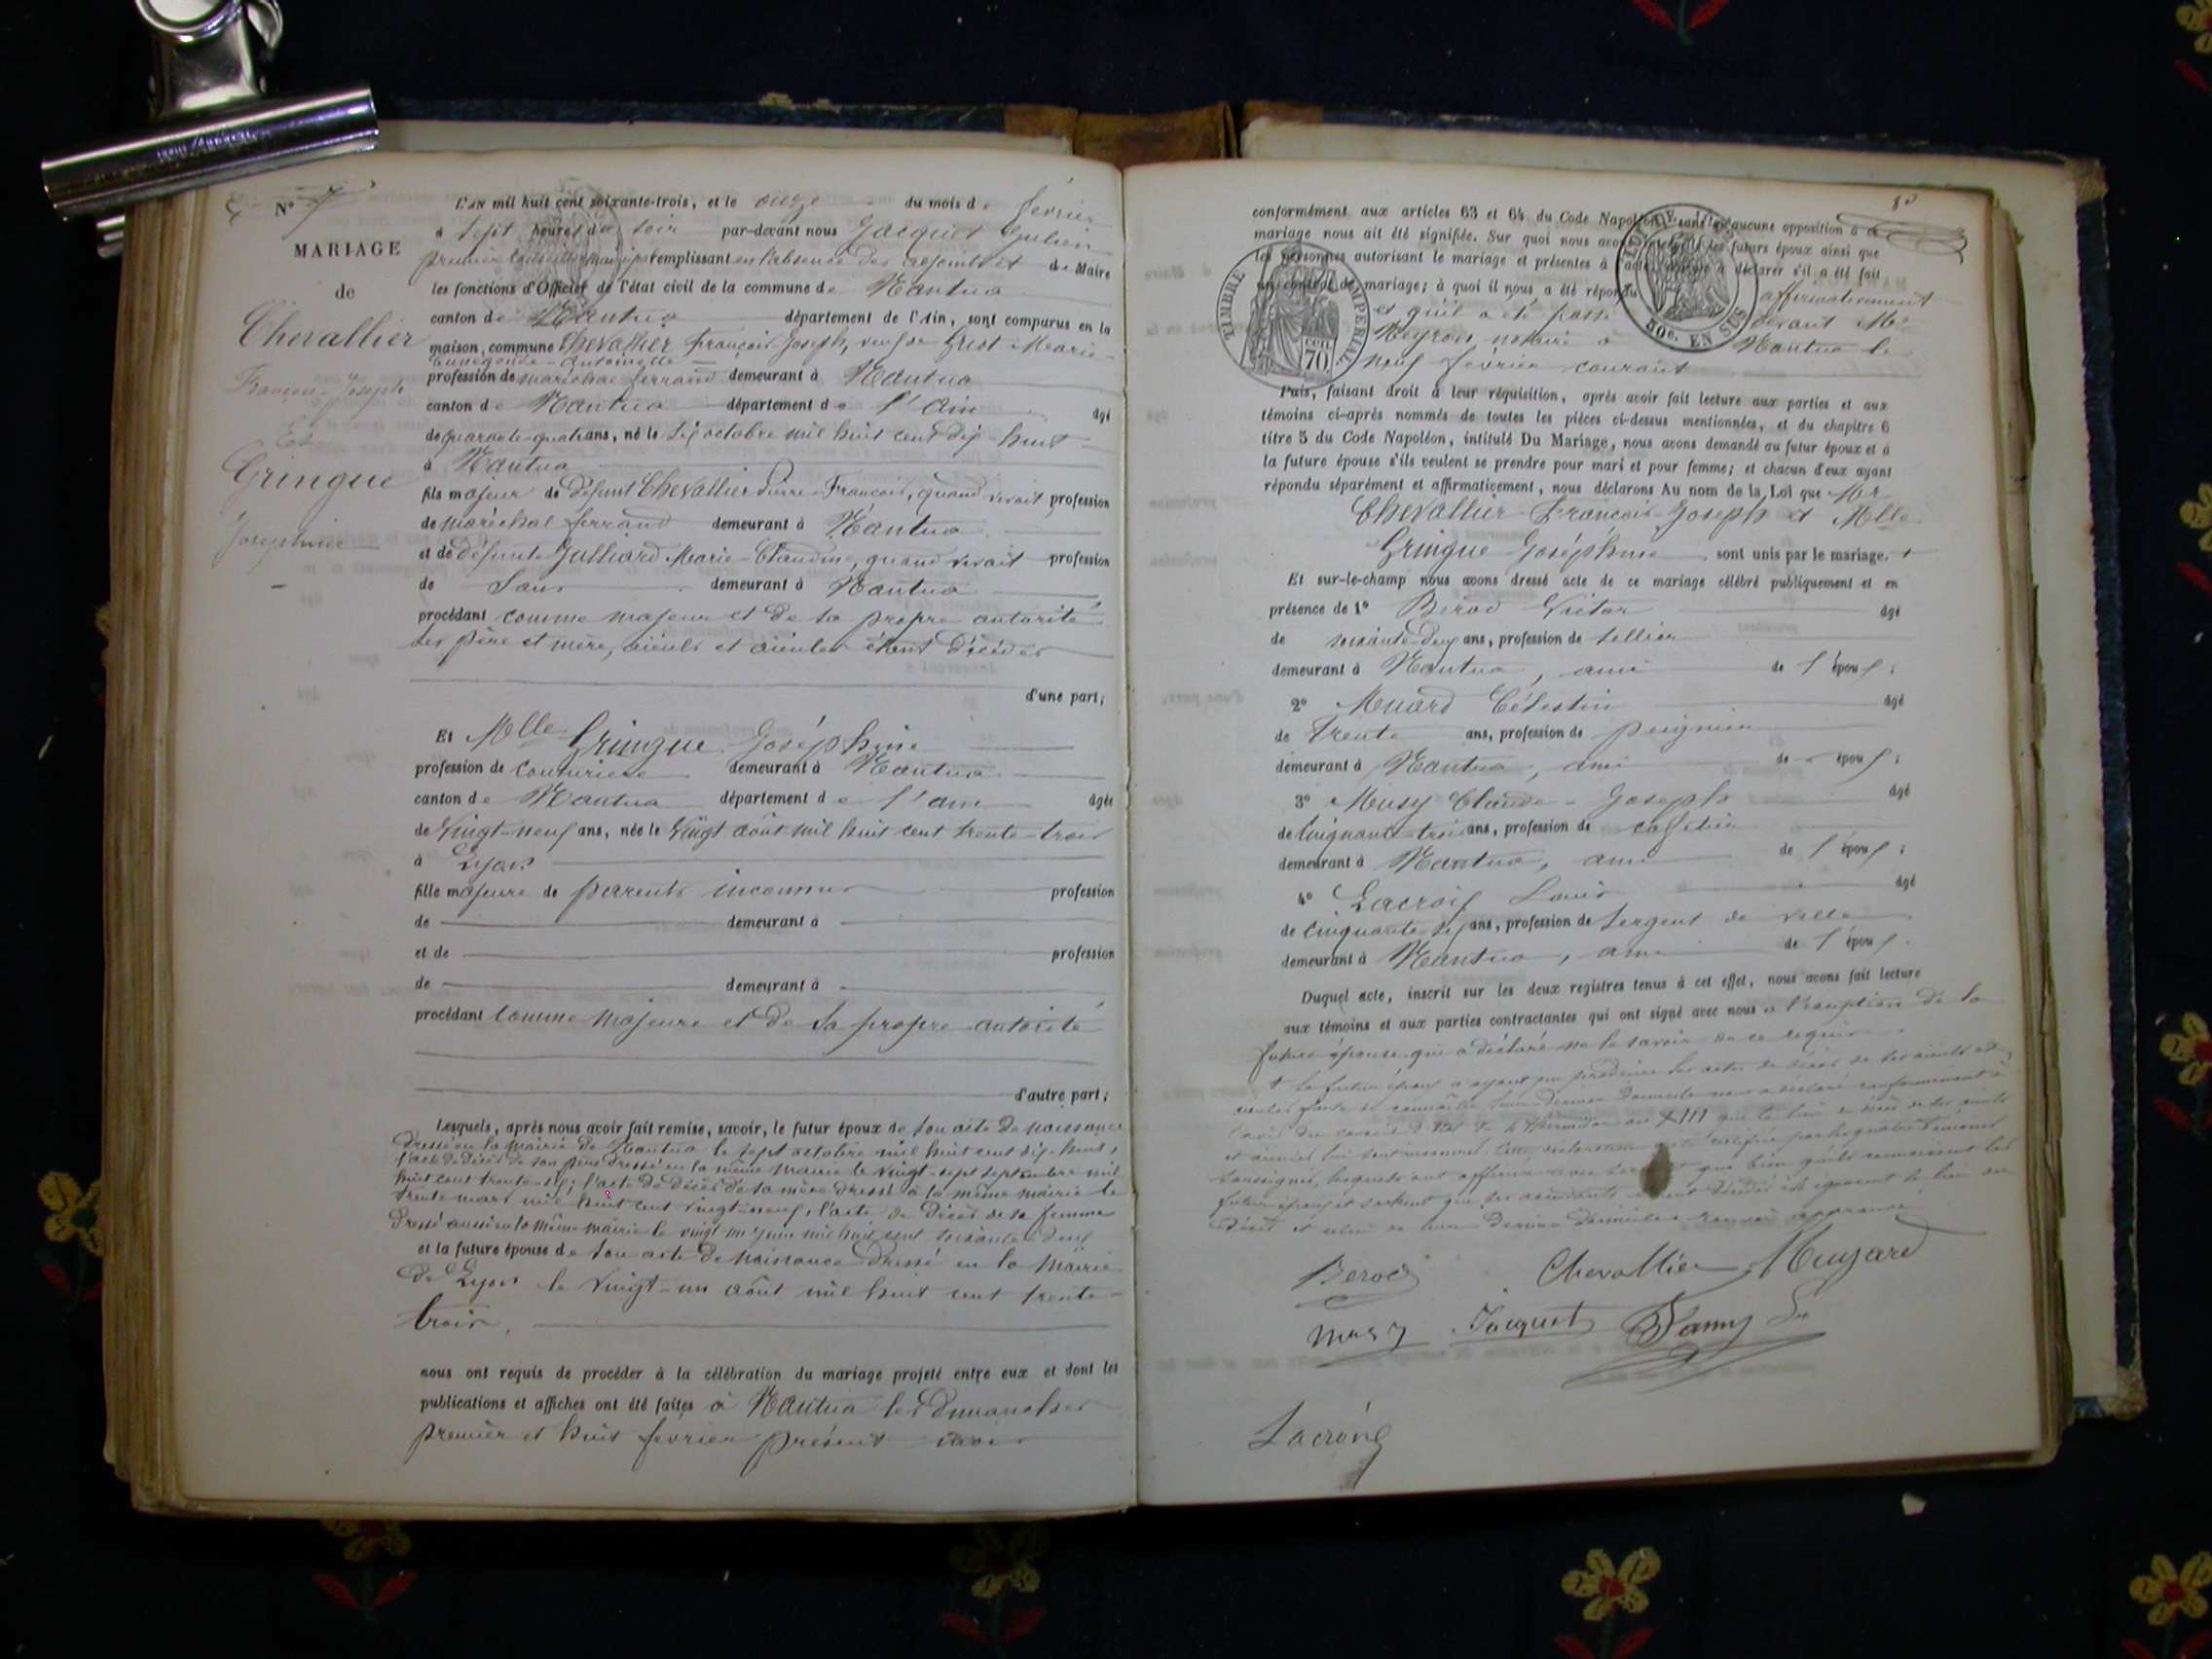 N° 7
MARIAGE
de
Chevallier
François-Joseph
Et
Gringue
Joséphine
L'AN mil huit cent soixante-trois, et le onze du mois de février
à sept heures du soir par-devant nous Jacquet Julien
premier conseiller municipal remplissant en l'absence des adjoints et du Maire
les fonctions d'Officier de l'état civil de la commune de Nantua
canton de Nantua département de l'Ain, sont comparus en la
maison commune Chevallier François-Joseph, veuf de Marie-
Cunégonde-Antoinette
profession de maréchal ferrand demeurant à Nantua
canton de Nantua département de l'Ain âgé
de quarante-quatre ans, né le octobre mil huit cent dix-huit
à Nantua
fils majeur de défunt Chevallier Pierre-François, quand vivait profession
de maréchal ferrand demeurant à Nantua
et de défunte Julliard Marie-Claudine, quand vivait profession
de Sans demeurant à Nantua
procédant comme majeur et de sa propre autorité
ses père et mère, aïeuls et aïeules étant décédés
d'une part;
Et Melle Gringue Joséphine
profession de couturière demeurant à Nantua
canton de Nantua département de l'ain âgée
de Vingt-neuf ans, née le Vingt août mil huit cent trente-trois
à Lyon
fille majeure de parents inconnus profession
de demeurant à
et de profession
de demeurant à
procédant comme majeure et de sa propre autorité
d'autre part;
Lesquels, après nous avoir fait remise, savoir, le futur époux de son acte de naissance
dressé en la mairie de Nantua le sept octobre mil huit cent dix-huit,
l'acte de décès de son père dressé en la même mairie le vingt-sept septembre mil
huit cent trente-six; l'acte de décès de sa mère dressé à la même mairie le
trente mars mil huit cent vingt-neuf, l'acte de décès de sa femme
dressé aussi en la même mairie le vingt-un juin mil huit cent soixante-deux
et la future épouse de son acte de naissance dressé en la Mairie
de Lyon le vingt-un août mil huit cent trente-
trois.
nous ont requis de procéder à la célébration du mariage projeté entre eux et dont les
publications et affiches ont été faites à Nantua les dimanches
premier et huit février présent mois
conformément aux articles 63 et 64 du Code Napoléon, sans qu'aucune opposition à ce
mariage nous ait été signifiée. Sur quoi nous avons interpellé les futurs époux ainsi que
les personnes autorisant le mariage et présentes à l'acte, à déclarer s'il a été fait
un contrat de mariage; à quoi il nous a été répondu affirmativement
et qu'il a été passé devant Me
Meyron notaire à Nantua le
neuf février courant
TIMBRE IMPERIAL
70
50c. EN SUS
Puis, faisant droit à leur réquisition, après avoir fait lecture aux parties et aux
témoins ci-après nommés de toutes les pièces ci-dessus mentionnées, et du chapitre 6
titre 5 du Code Napoléon, intitulé Du Mariage, nous avons demandé au futur époux et à
la future épouse s'ils veulent se prendre pour mari et pour femme; et chacun d'eux ayant
répondu séparément et affirmativement, nous déclarons Au nom de la Loi que Mr
Chevallier François-Joseph et Melle
Gringue Joséphine sont unis par le mariage. +
Et sur-le-champ nous avons dressé acte de ce mariage célébré publiquement et en
présence de 1° Bérod Victor âgé
de soixante-deux ans, profession de sellier
demeurant à Nantua, ami de l'époux;
2° Célestin âgé
de Trente ans, profession de peignier
demeurant à Nantua, ami de époux;
3° Musy Claude-Joseph âgé
de cinquante-trois ans, profession de cafetier
demeurant à Nantua, ami de l'époux;
4° Lacroix Louis âgé
de cinquante ans, profession de sergent de ville
demeurant à Nantua, ami de l'époux.
Duquel acte, inscrit sur les deux registres tenus à cet effet, nous avons fait lecture
aux témoins et aux parties contractantes qui ont signé avec nous à l'exception de la
future épouse qui a déclaré ne le savoir de ce requis
+ Le futur époux n'ayant pu produire les actes de décès de ses aïeuls et
aïeules faute de connaître leur dernier domicile nous a déclaré conformément à
l'avis du conseil d'Etat du 4 thermidor an XIII que le lieu de décès de ses aïeuls
et aïeules lui sont inconnus. Cette déclaration a été certifiée par les quatre témoins
soussignés, lesquels ont affirmé avec serment que bien qu'ils connaissent le
futur époux et sachent que ses ascendants soient décédés ils ignorent le lieu du
décès et celui de leur dernier domicile renvoi approuvé
Berod Chevallier
Musy Jacquet
Lacroix